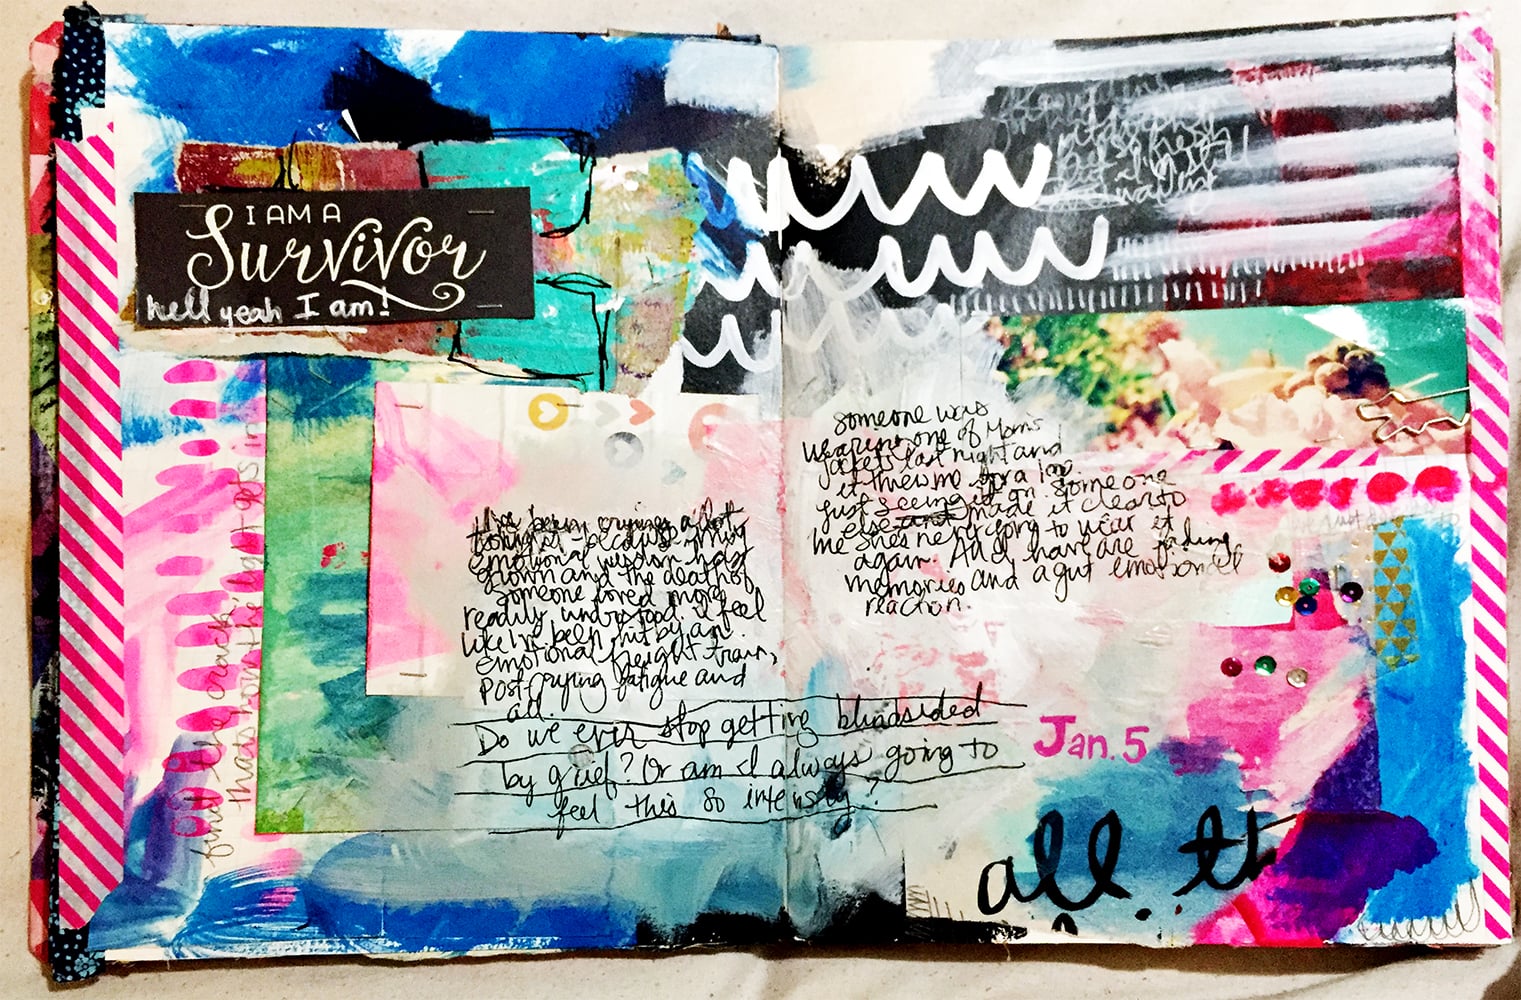 I AM A
Survivor
hell yeah I am!
find the cracks,
that's how the light gets in
I've been crying a lot
tonight - because my
emotional wisdom has
grown and the death of
someone loved more
readily understood. I feel
like I've been hit by an
emotional freight train,
post crying fatigue and
all.
Do we ever stop getting blindsided
by grief? Or am I always going to
feel this so intensely?
someone was
wearing one of Mom's
jackets last night and
it threw me for a loop.
Just seeing it on someone
else and made it clear to
me she's never going to wear it
again. All I have are fading
memories and a gut emotional
reaction.
Jan. 5
all th